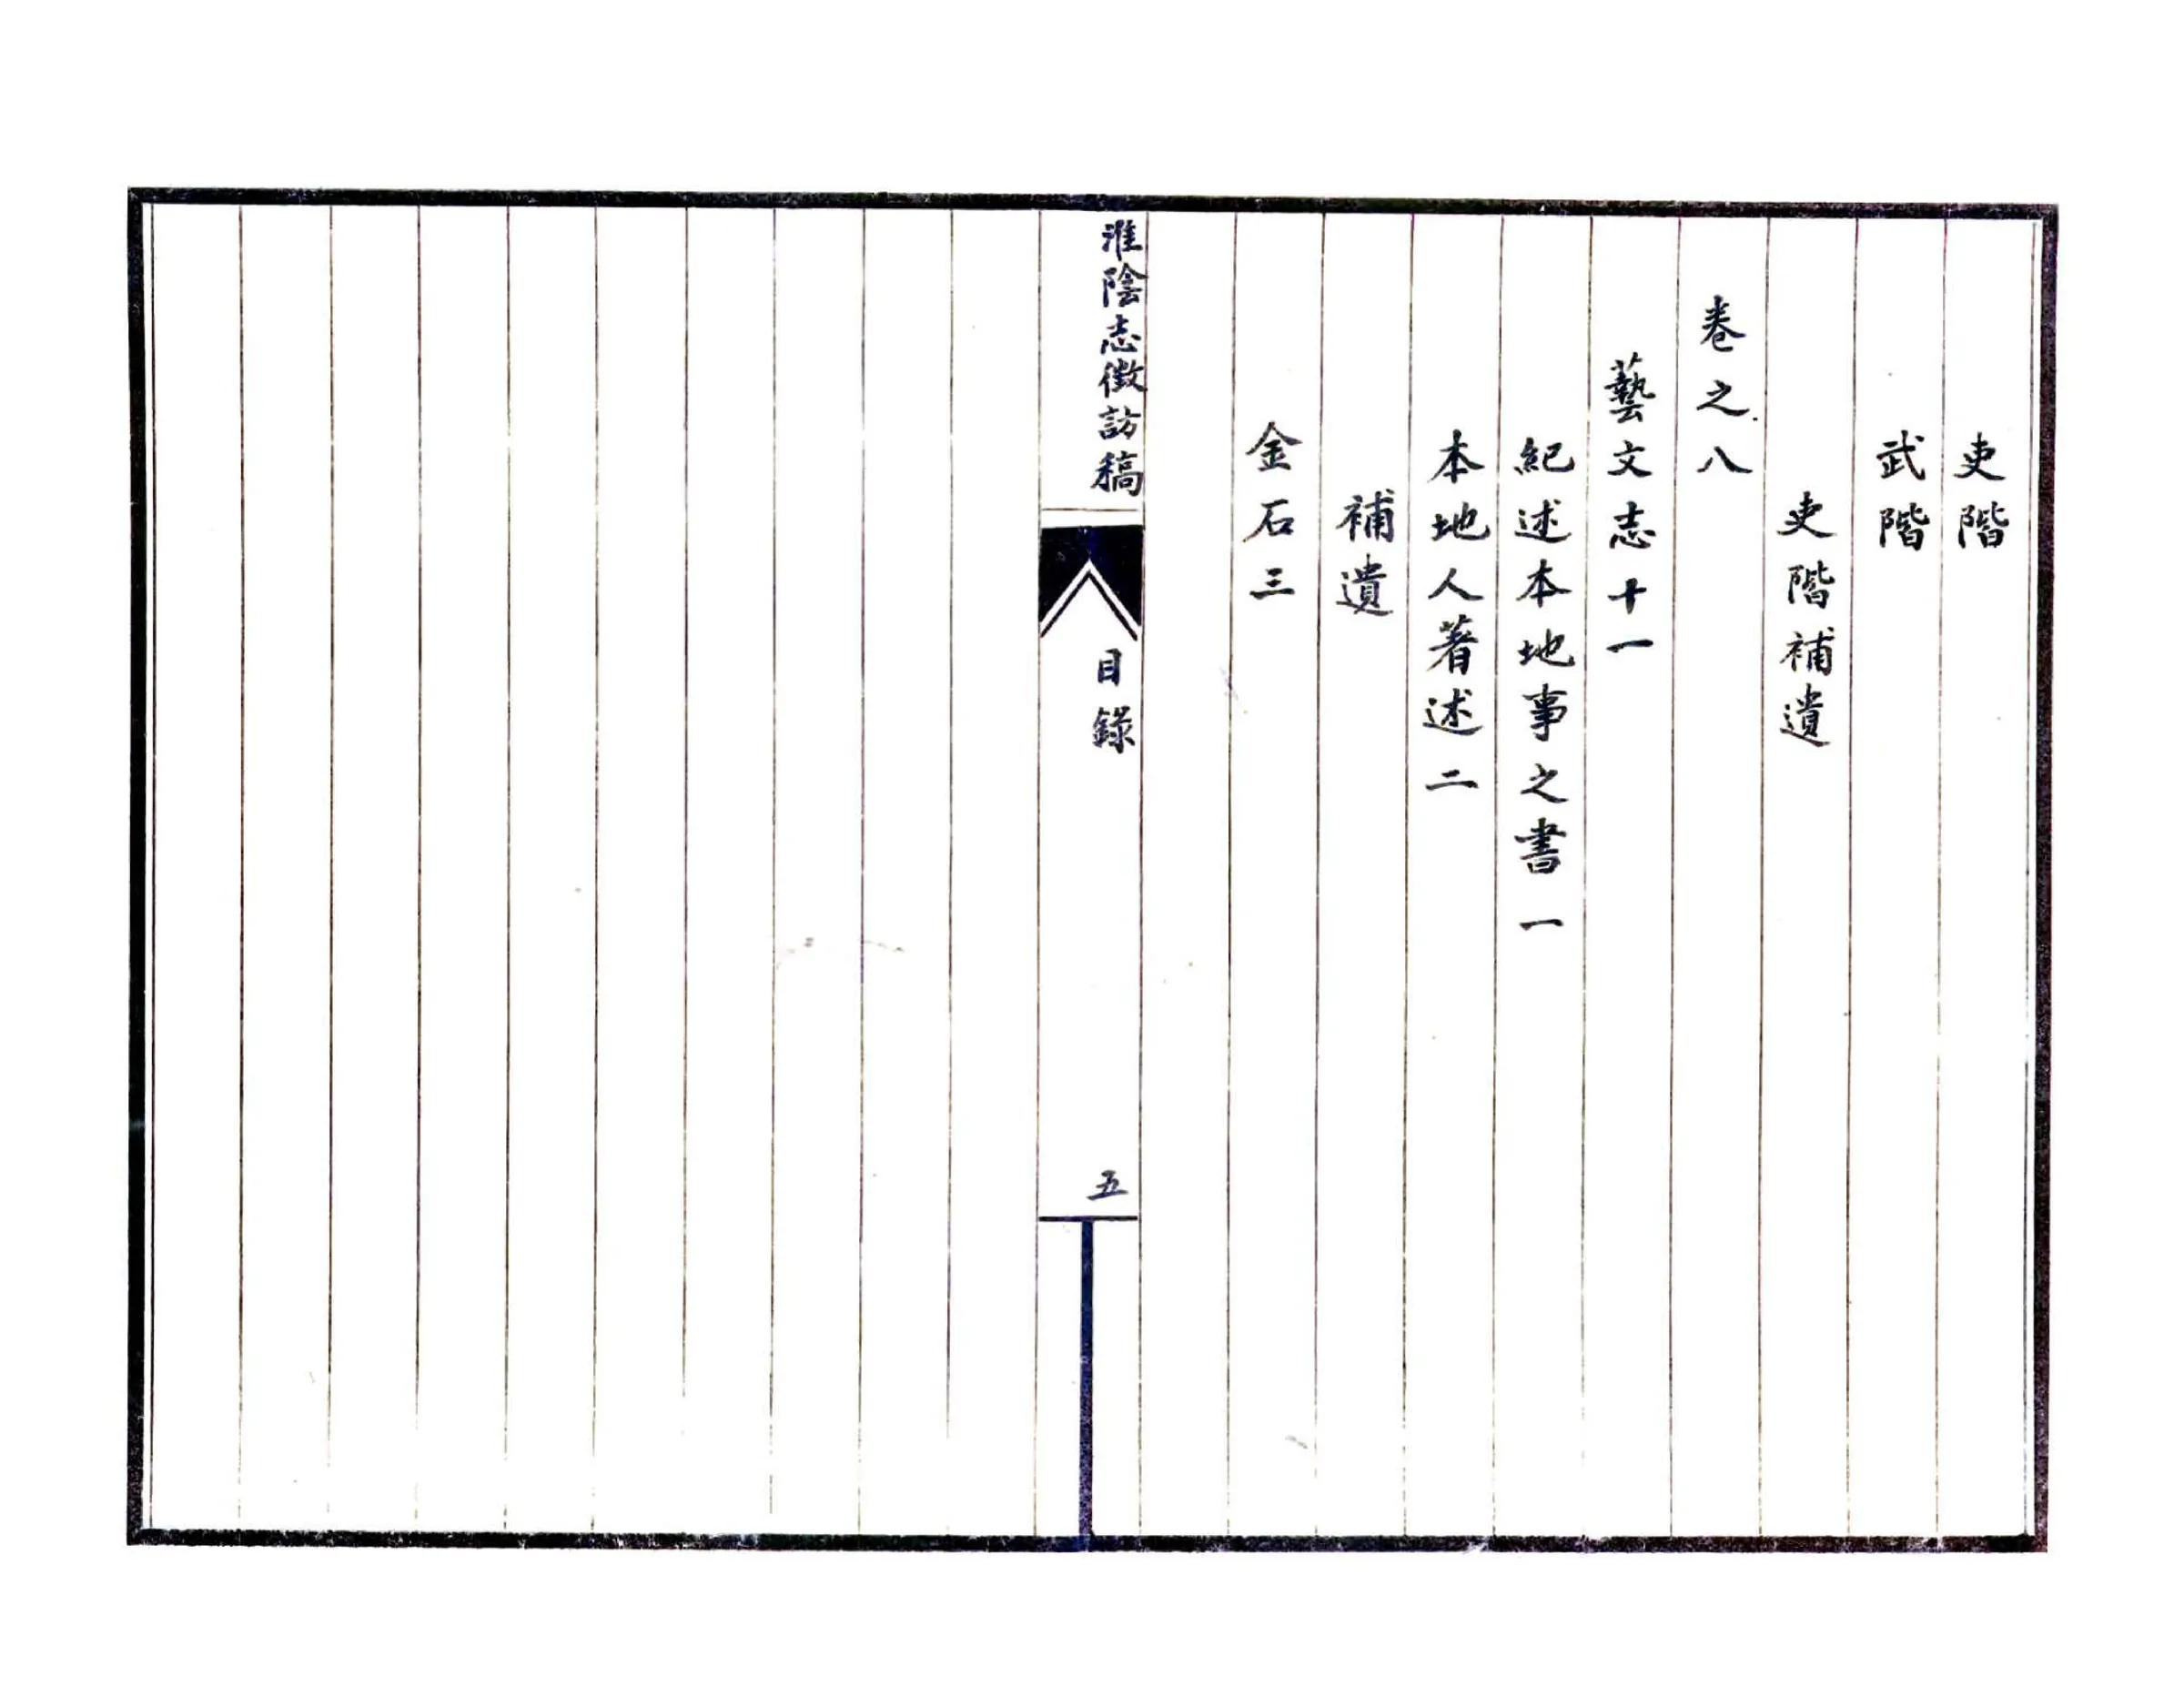 吏階
武階
吏階補遺
卷之八
藝文志十一
紀述本地事之書一
本地人著述二
補遺
金石三
淮陰志徵訪稿
目錄
五